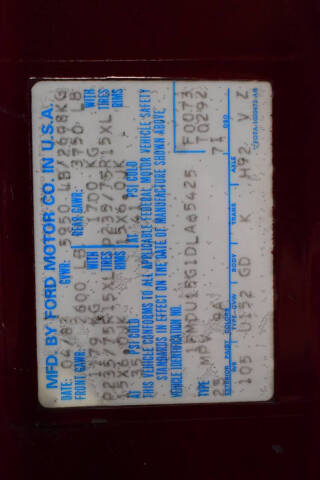 MFD. BY FORD MOTOR CO. IN U.S.A.
DATE: GVWR: 5950 LB/2698KG
FRONT GAWR: 2600 LB REAR GAWR: 3750 LB
1179 KG WITH 1700 KG WITH
P235/75R15XL TIRES P235/75R15XL TIRES
15X6.0JK RIMS 15X6.0JK RIMS
AT 35 PSI COLD AT 41 PSI COLD
THIS VEHICLE CONFORMS TO ALL APPLICABLE FEDERAL MOTOR VEHICLE SAFETY
STANDARDS IN EFFECT ON THE DATE OF MANUFACTURE SHOWN ABOVE
VEHICLE IDENTIFICATION NO.
1FMDU15G1DLA65425 F0073
TYPE MPV T0292
25 6A 71
EXTERIOR PAINT COLORS DSO
WB TYPE-GVW BODY TRANS AXLE
105 U152 GD K H92 V Z